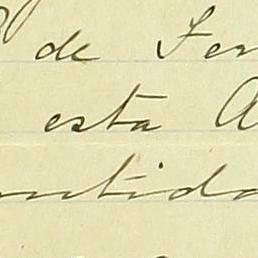 de Fer
esta A
ntida